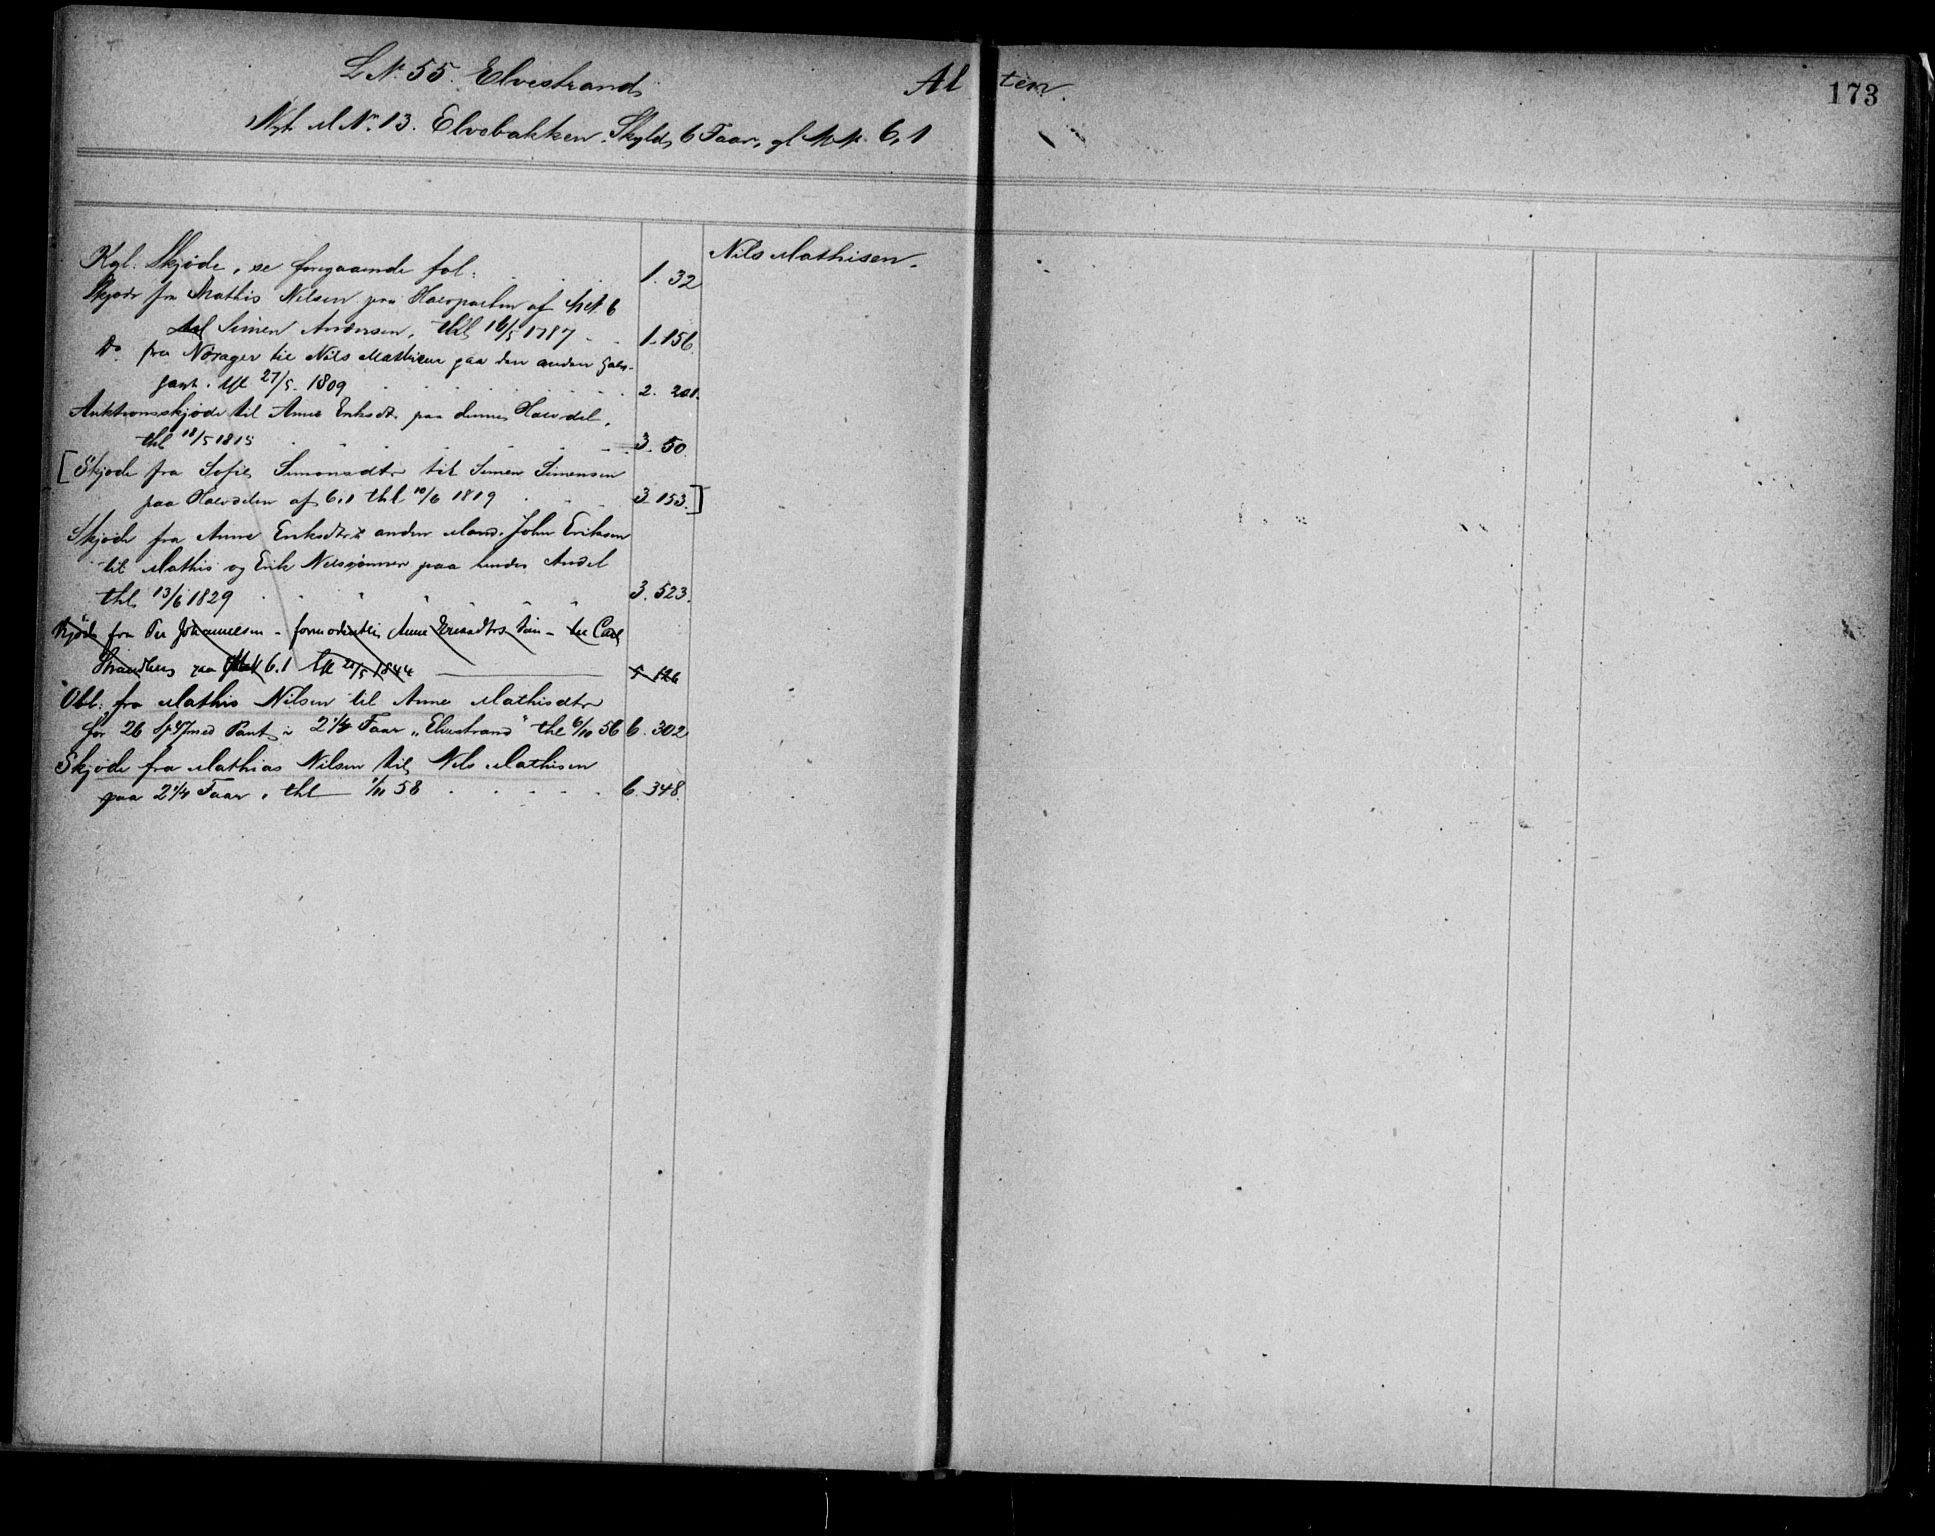 L. No. 55. Elvestrand. Al ten. 173
Nyt M No. 13. Elvebakken. Skyld, 6 Faar, gl M. N. 6,1
Kgl. Skjøde, se foregaaende fol. 1. 32 Nils Mathisen.
Skjøde fra Mathis Nilsen paa Halvparten af Mt. 6
til Simen Andersen, thl 16/5 1787 1. 156.
Do. fra Norager til Nils Mathisen paa den anden Halv-
part. thl 27/5. 1809 2. 201.
Auktionsskjøde til Anne Eriksdtr. paa dennes Halvdel,
thl 18/5 1815 3. 50.
[Skjøde fra Sofie Simonsdtr til Simen Simensen
paa Halvdelen af 6,1 thl 10/6 1819 3. 153.]
Skjøde fra Anne Eriksdtrs anden Mand. John Eriksen
til Mathis og Erik Nilssønner paa hendes Andel
thl. 13/6 1829 3. 523.
Skjøde fra Per Johannesen - formodentlig Anne Eriksdtrs Søn - til Carl
Strandberg paa 6.1 thl 21/5 1844 5 126
Obl. fra Mathis Nilsen til Anne Mathisdtr
for 26 Spd med Pant i 2 1/4 Faar "Elvestrand" thl 6/10 56 6. 302
Skjøde fra Mathias Nilsen til Nils Mathisen
paa 2 1/4 Faar, thl 1/11 58 6. 348.